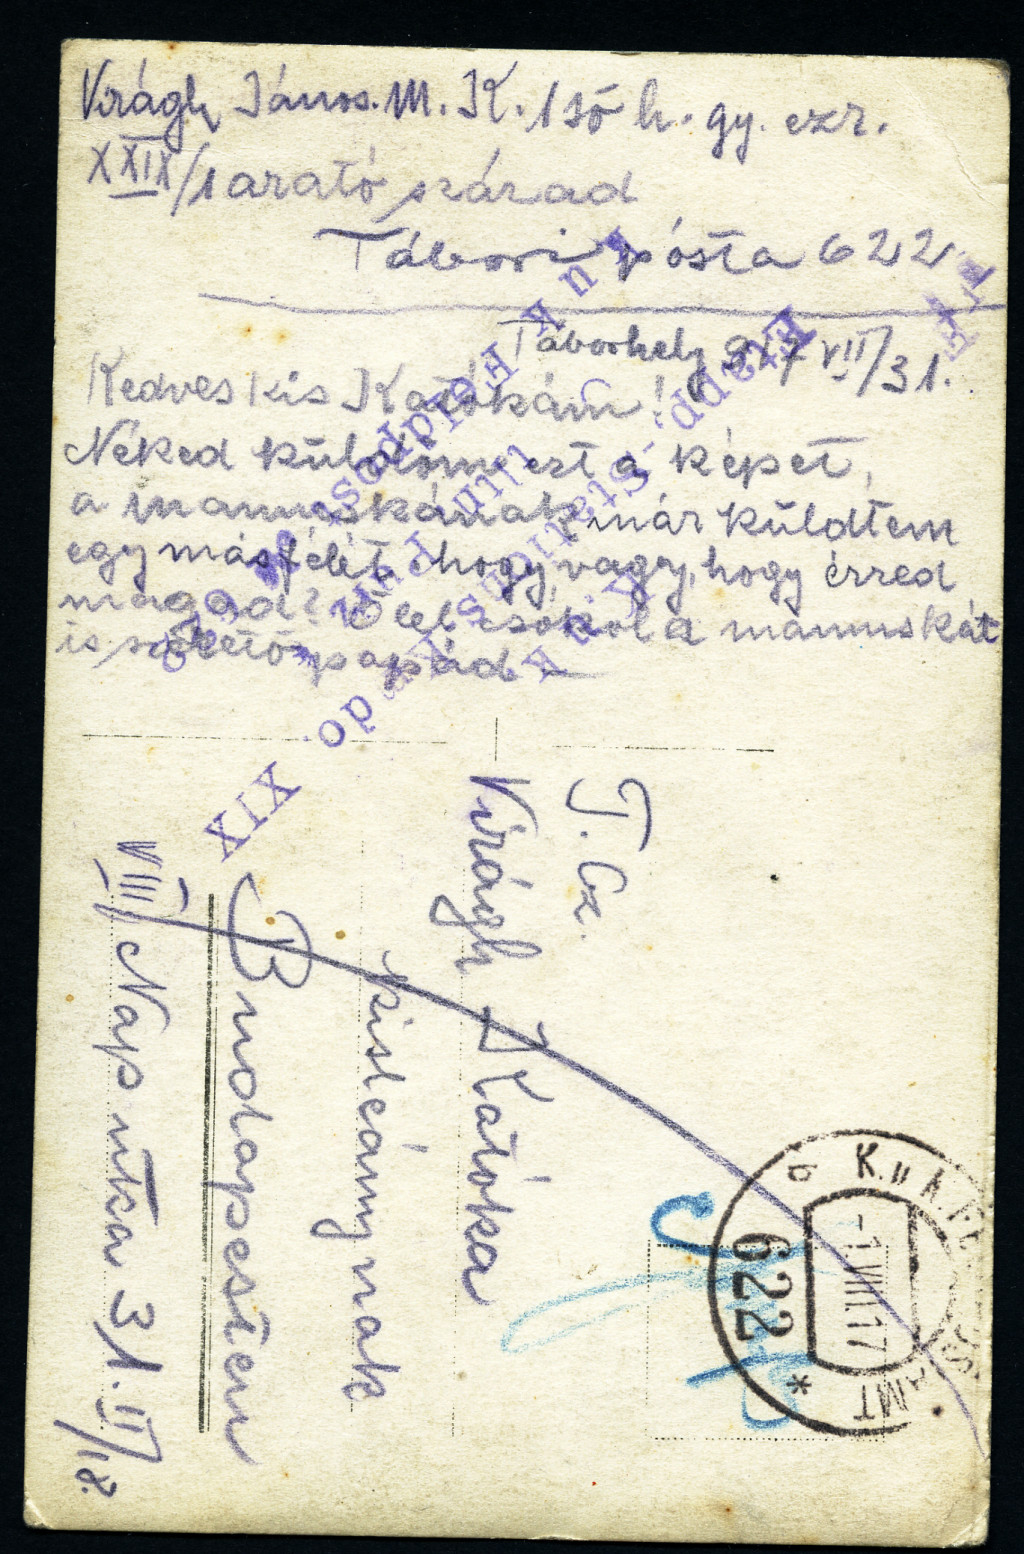 Virágh János. M. K. 1ső h. gy. ezr.
XXIX/1 arató század
Tábori pósta 622
Táborhely 917 VII/31.
Kedves kis Katókám!
Néked küldöm ezt a képet,
a mamuskának már küldtem
egy másfélét, hogy vagy, hogy érzed
magad? Ölel csókol a mamuskát
is szerető papád
T. Cz.
Virágh Katóka
kisleánynak
Budapesten
VIII/ Nap utca 31. II/18.
K. u. K.
622
-1.VIII.17
AMT
b
*
K. u. K.
Etapp.-Stations-
do. XIX
K u K Feldpost